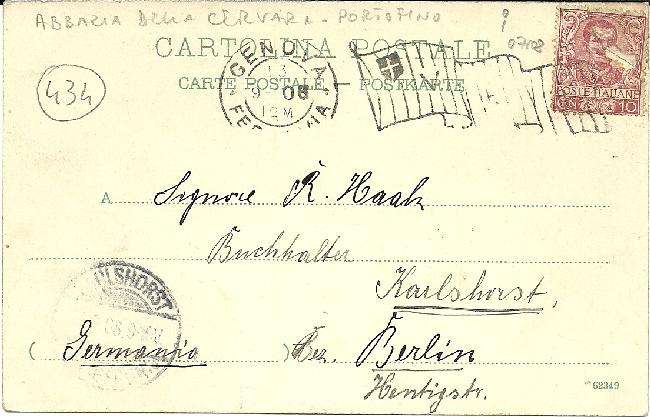 ABBAZIA DELLA CERVARA - PORTOFINO
CARTOLINA POSTALE
CARTE POSTALE — POSTKARTE
434
GENOVA
13
9 06
12M
FERROVIA
POSTE ITALIANE
10
A Signore R. Haak
Buchhalter
Karlshorst,
(Germania) Bez. Berlin
Hentigstr.
RLSHORST
62349